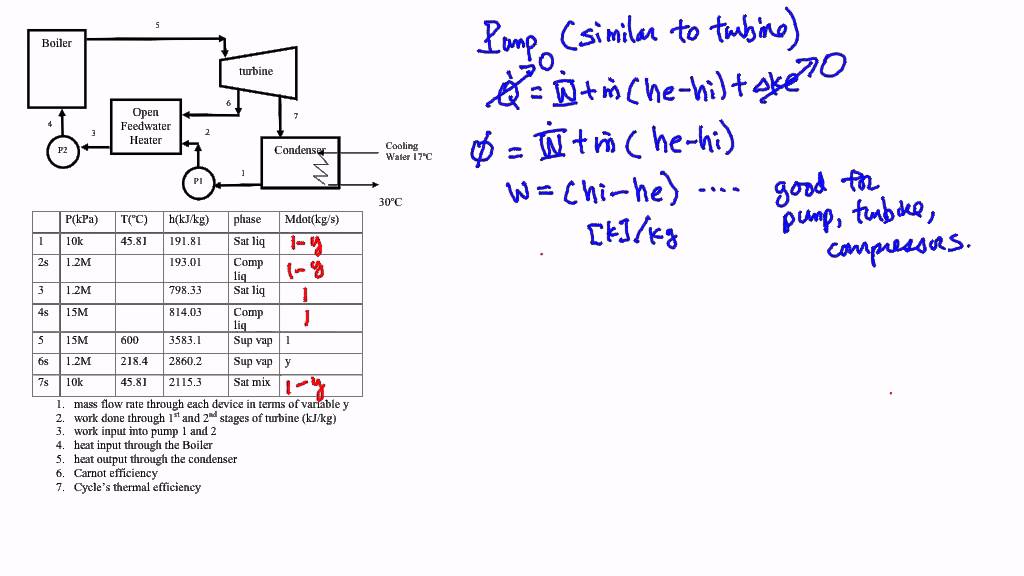 5
Boiler
turbine
6
7
Open
Feedwater
Heater
4
3
2
P2
P1
1
Condenser
Cooling
Water 17°C
30°C
P(kPa) T(°C) h(kJ/kg) phase Mdot(kg/s)
1 10k 45.81 191.81 Sat liq 1-y
2s 1.2M 193.01 Comp liq 1-y
3 1.2M 798.33 Sat liq 1
4s 15M 814.03 Comp liq 1
5 15M 600 3583.1 Sup vap 1
6s 1.2M 218.4 2860.2 Sup vap y
7s 10k 45.81 2115.3 Sat mix 1-y
1. mass flow rate through each device in terms of variable y
2. work done through 1st and 2nd stages of turbine (kJ/kg)
3. work input into pump 1 and 2
4. heat input through the Boiler
5. heat output through the condenser
6. Carnot efficiency
7. Cycle's thermal efficiency
Pump (similar to turbine)
Q̇ → 0 = Ẇ + ṁ (he-hi) + Δke → 0
Ø = Ẇ + ṁ (he-hi)
w = (hi-he) .... good for
pump, turbine,
compressors.
[kJ/kg